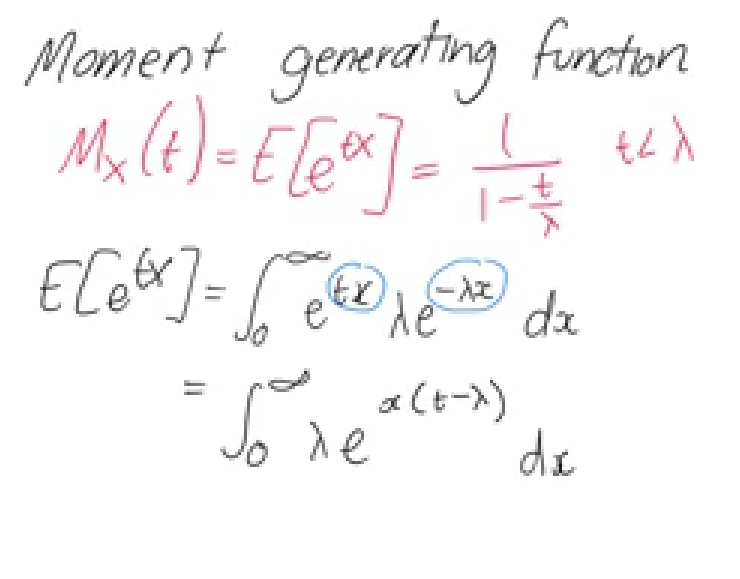 Moment generating function
Mₓ(t) = E[e^{tx}] = 1/(1 - t/λ) t < λ
E[e^{tx}] = ∫₀^∞ e^{tx} λe^{-λx} dx
= ∫₀^∞ λe^{x(t-λ)} dx